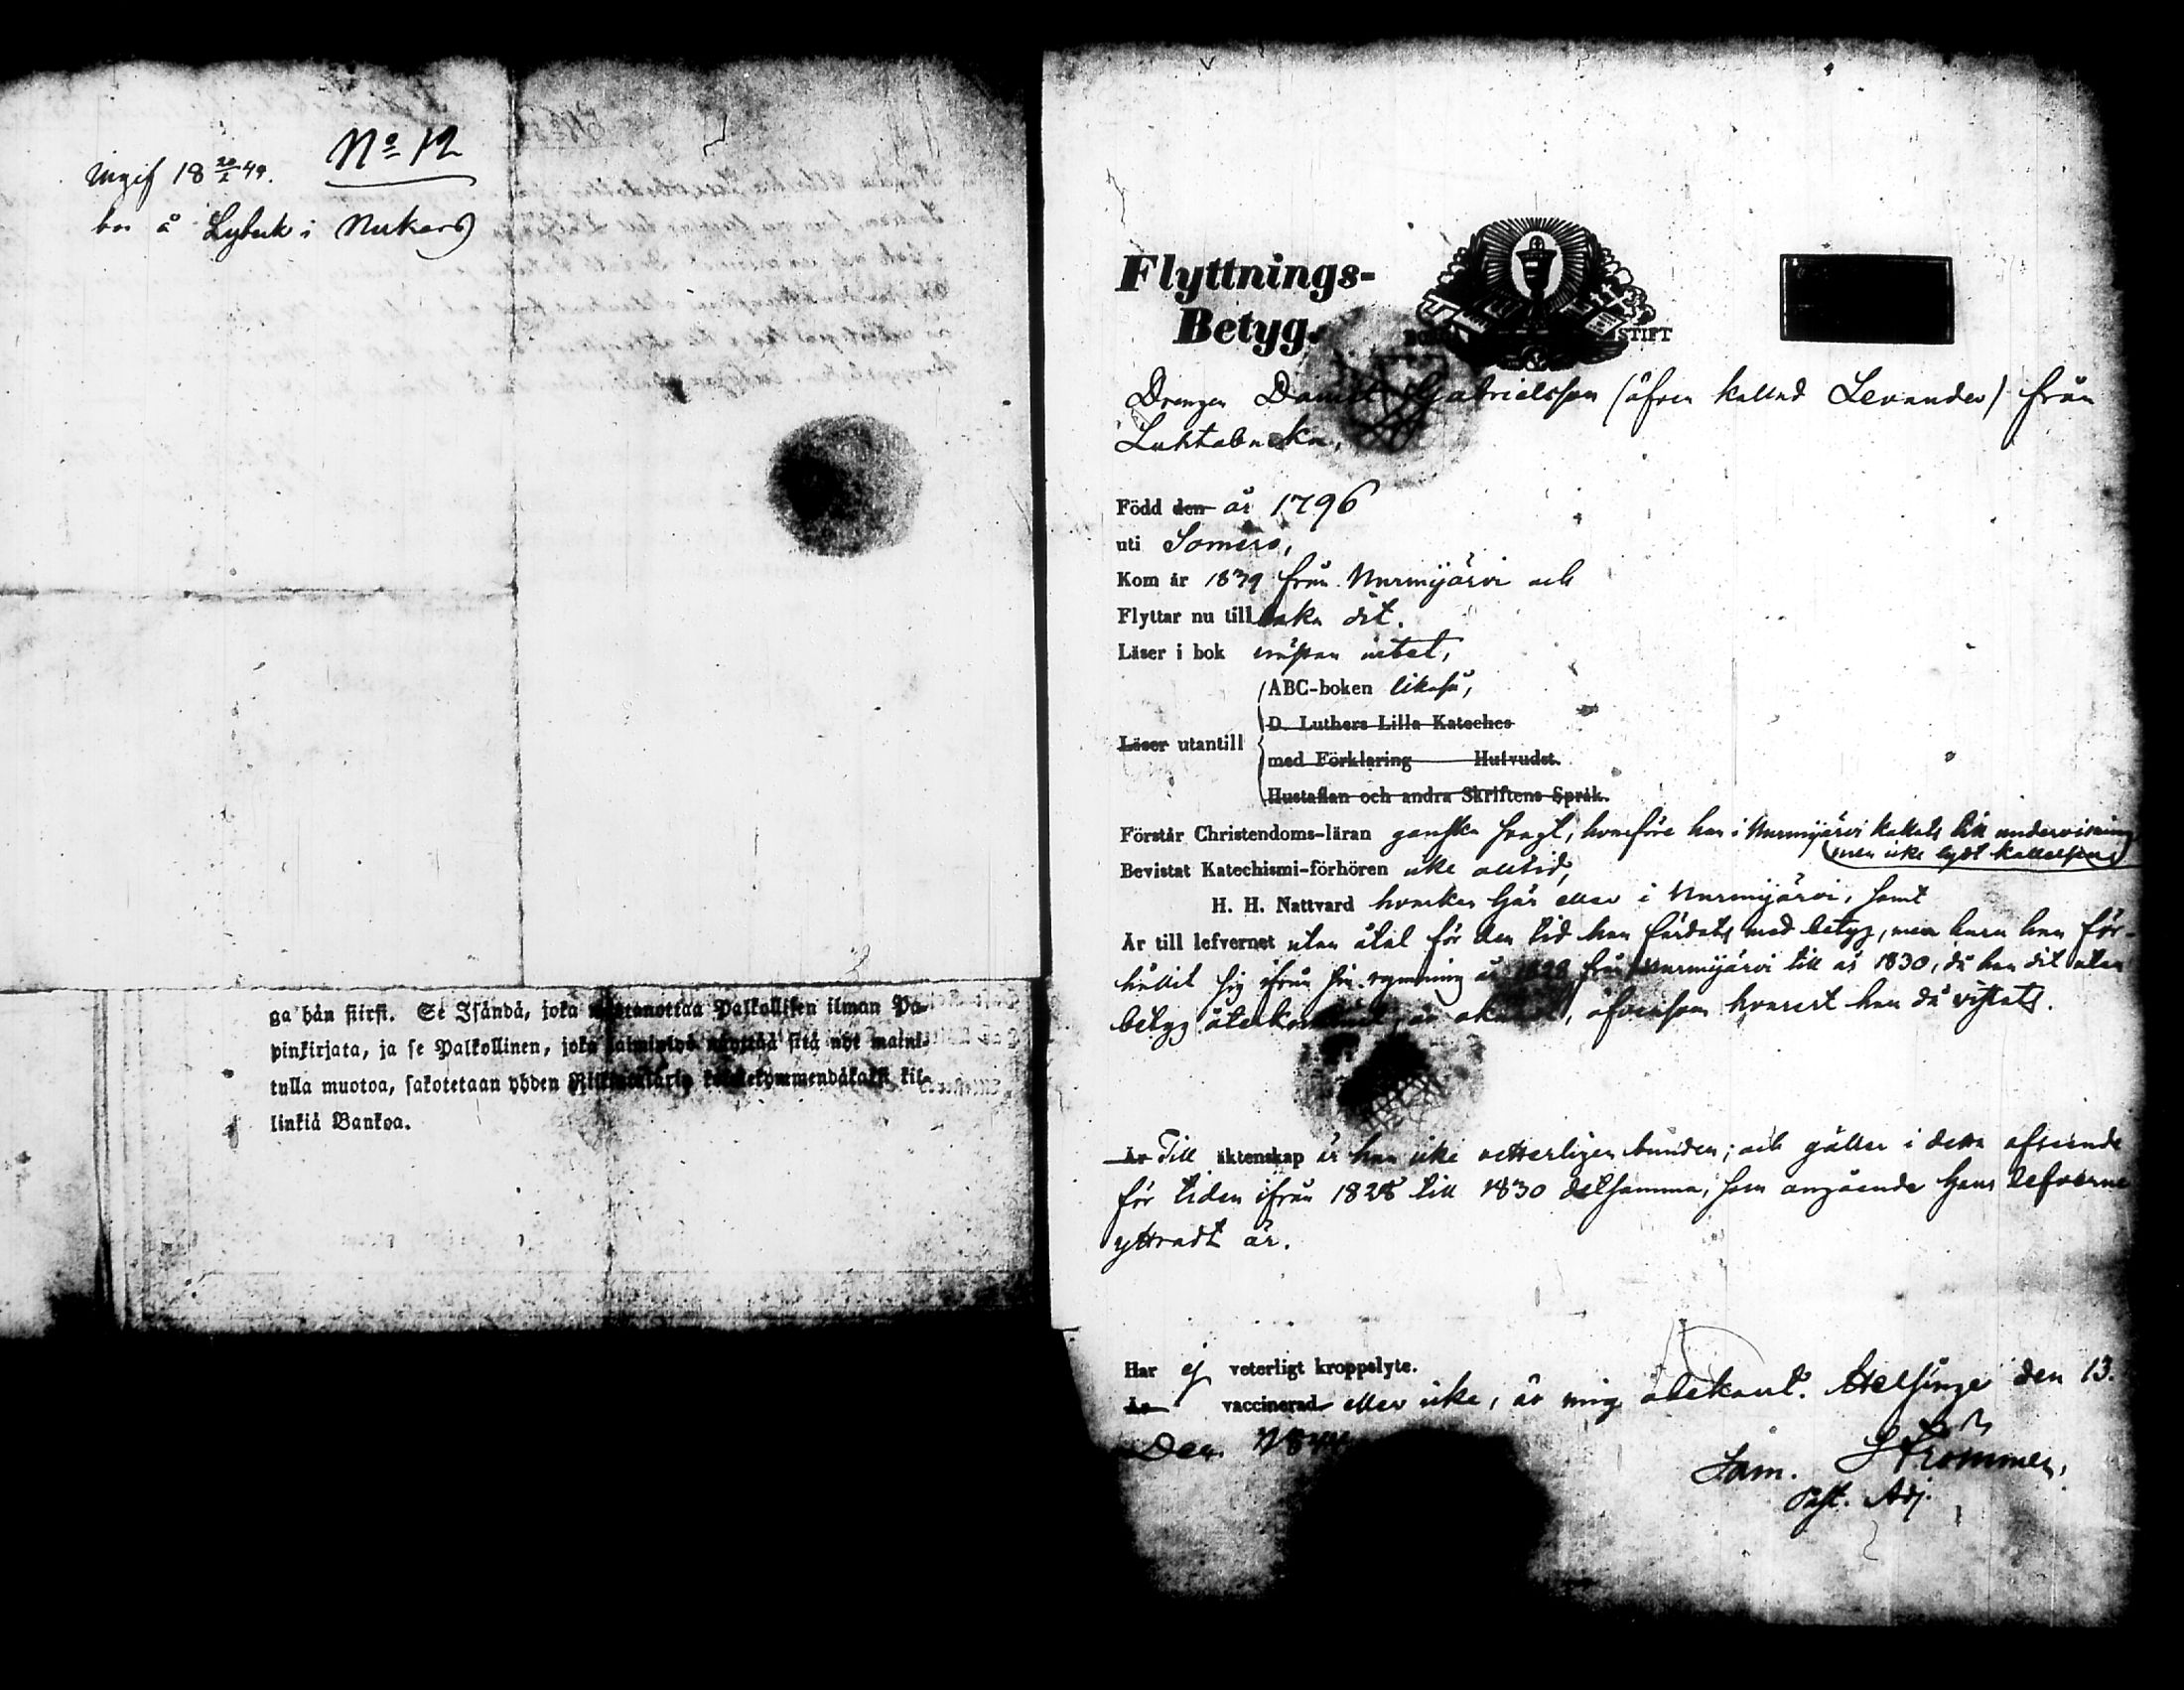 No 12
Ingif 18 20/2 44.
bor å Lybeck i Nukars
ga hän siirsi. Se Isändä, joka Palkollisen ilman Pa-
pinkirjata, ja se Palkollinen, joka sitä nyt maini-
tulla muotoa, sakotetaan yhden kil-
linkiä Bankoa.
Flyttnings-
Betyg.
STIFT
Drengen Daniel Gabrielsson (äfven kallad Levander) från
Luhtabacka,
Född den år 1796
uti Somero,
Kom år 1839 från Nurmijärvi och
Flyttar nu tillbaka dit.
Läser i bok nästan intet,
ABC-boken likaså,
D. Luthers Lilla Kateches
Läser utantill
med Förklaring Hufvudst.
Hustaflan och andra Skriftens Språk.
Förstår Christendoms-läran ganska svagt, hvarföre han i Nurmijärvi kallats till undervisning
(men icke lydt kallelsen)
Bevistat Katechismi-förhören icke alltid,
H. H. Nattvard hvarken här eller i Nurmijärvi, samt
Är till lefvernet utan åtal för den tid han färdats med betyg, men huru han för-
hållit sig ifrån sin rymning år 1828 från Nurmijärvi till år 1830, då han dit utan
betyg återkommit, är okändt, äfvensom hvarest han då vistats.
Är Till äktenskap är han icke vetterligen bunden; och gäller i detta afseende
för tiden ifrån 1828 till 1830 detsamma, som angående hans lefverne
yttradt är.
Har ej veterligt kroppslyte.
Är vaccinerad eller icke, är mig obekant. Helsinge den 13.
Dec. 184
Sam. Strömmer,
Past. Adj.